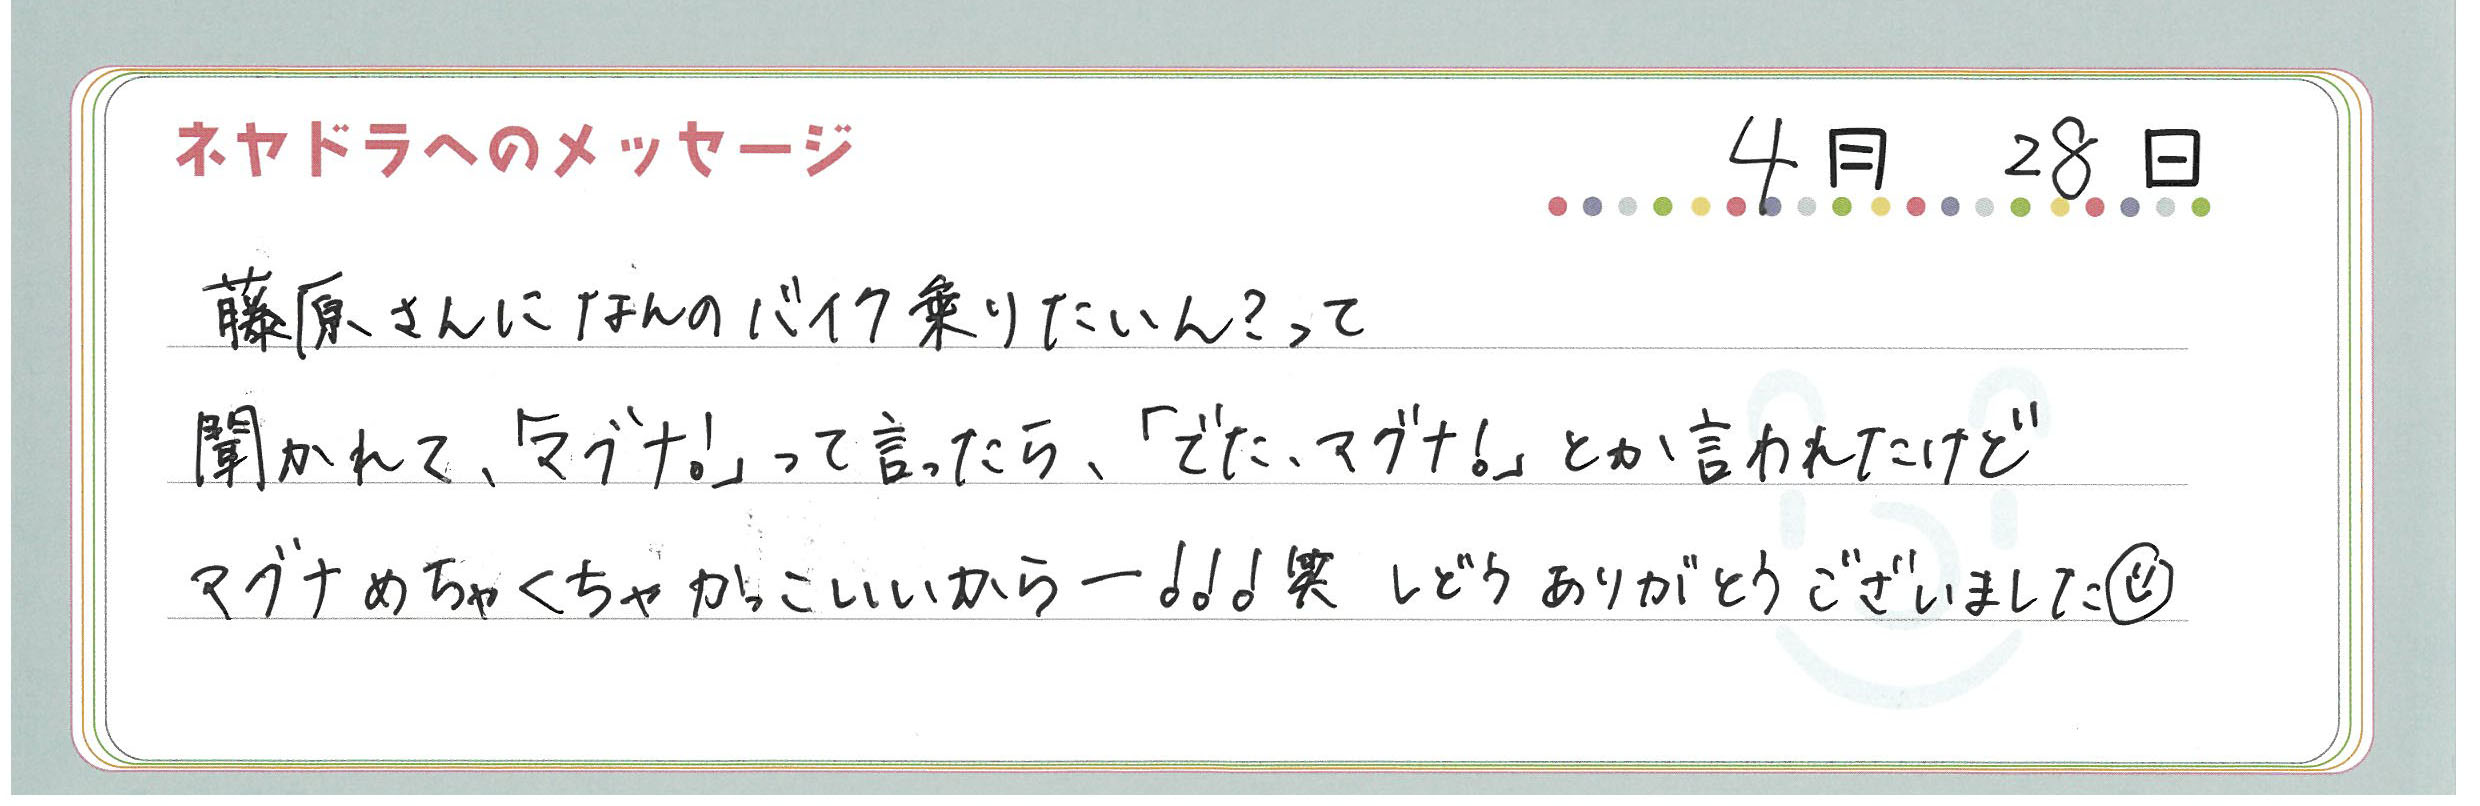 ネヤドラへのメッセージ
4月 28日
藤原さんになんのバイク乗りたいん?って
聞かれて、「マグナ!」って言ったら、「でた、マグナ!」とか言われたけど
マグナめちゃくちゃかっこいいからー!!!笑 しどうありがとうございました